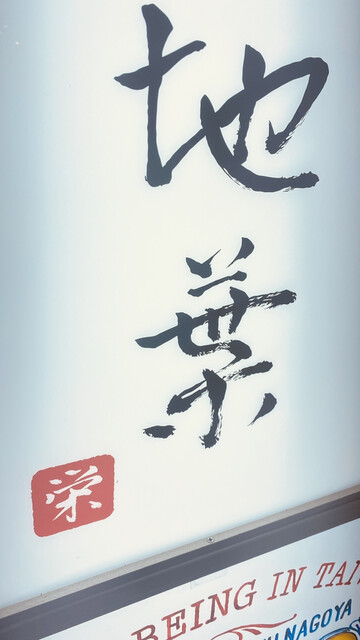 地
葉
栄
BEING IN TAI
NAGOYA